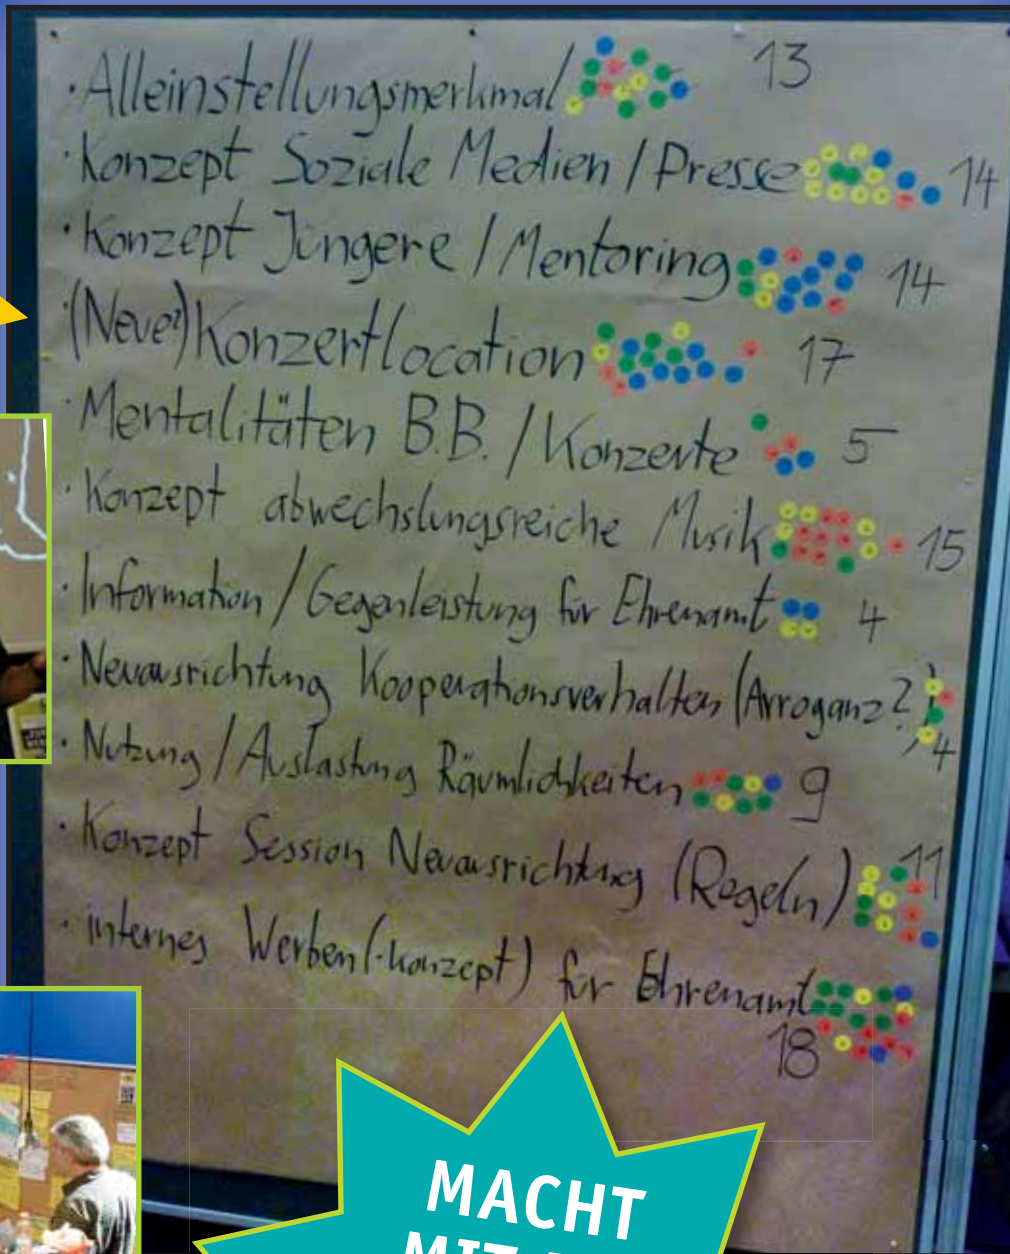 · Alleinstellungsmerkmal 13
· Konzept Soziale Medien / Presse 14
· Konzept Jüngere / Mentoring 14
· (Neue?) Konzertlocation 17
· Mentalitäten B.B. / Konzerte 5
· Konzept abwechslungsreiche Musik 15
· Information / Gegenleistung für Ehrenamt 4
· Neuausrichtung Kooperationsverhalten (Arroganz?) 4
· Nutzung / Auslastung Räumlichkeiten 9
· Konzept Session Neuausrichtung (Regeln) 11
· internes Werben(-konzept) für Ehrenamt
18
MACHT
MIT